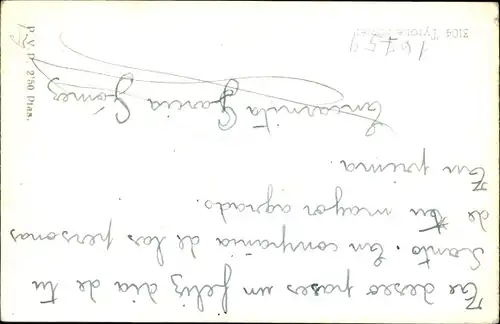 Te deseo pases un feliz dia de tu
santo. En compañia de las personas
de tu mayor agrado.
Tu prima.
Encarnita Garcia Gómez
P. V. P. 2'50 Ptas.
3104 Tyrone Power
19759